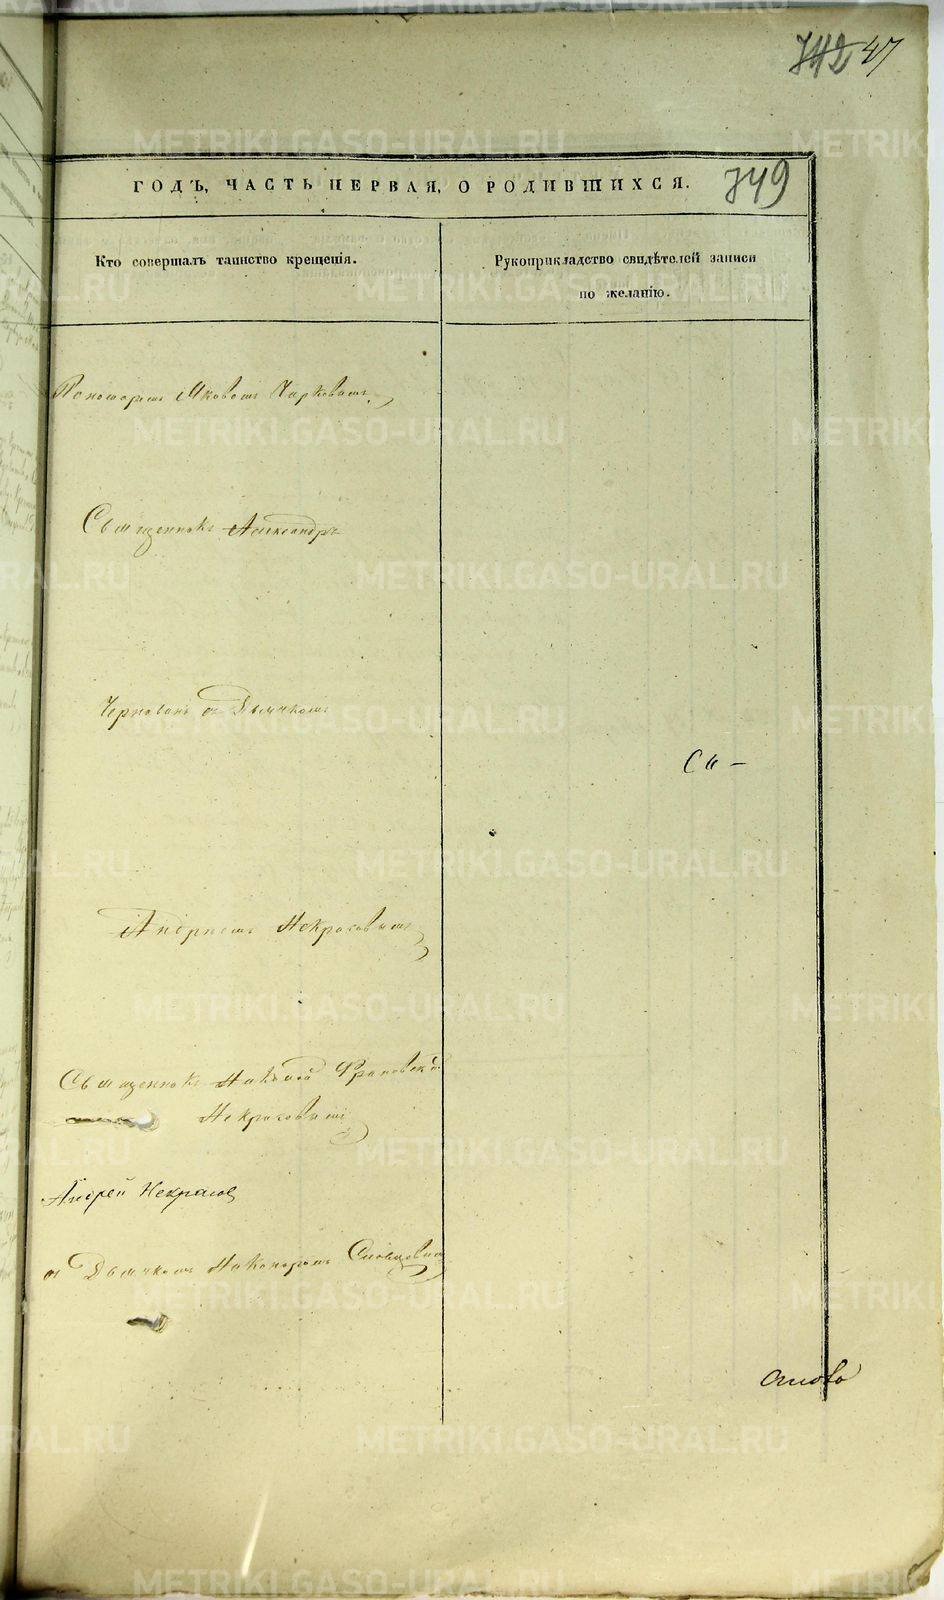 742 47
ГОДЪ, ЧАСТЬ ПЕРВАЯ, О РОДИВШИХСЯ.
749
Кто совершалъ таинство крещенія.
Рукоприкладство свидѣтелей записи
по желанію.
Пономаремъ Яковомъ
Священникъ Александръ
Черновъ съ Дьячкомъ
Си-
Андреемъ Некрасовымъ
Священникъ Николай
Некрасовымъ
Андрей Некрасов
съ Дьячкомъ Никаноромъ Словцовым
слово
METRIKI.GASO-URAL.RU